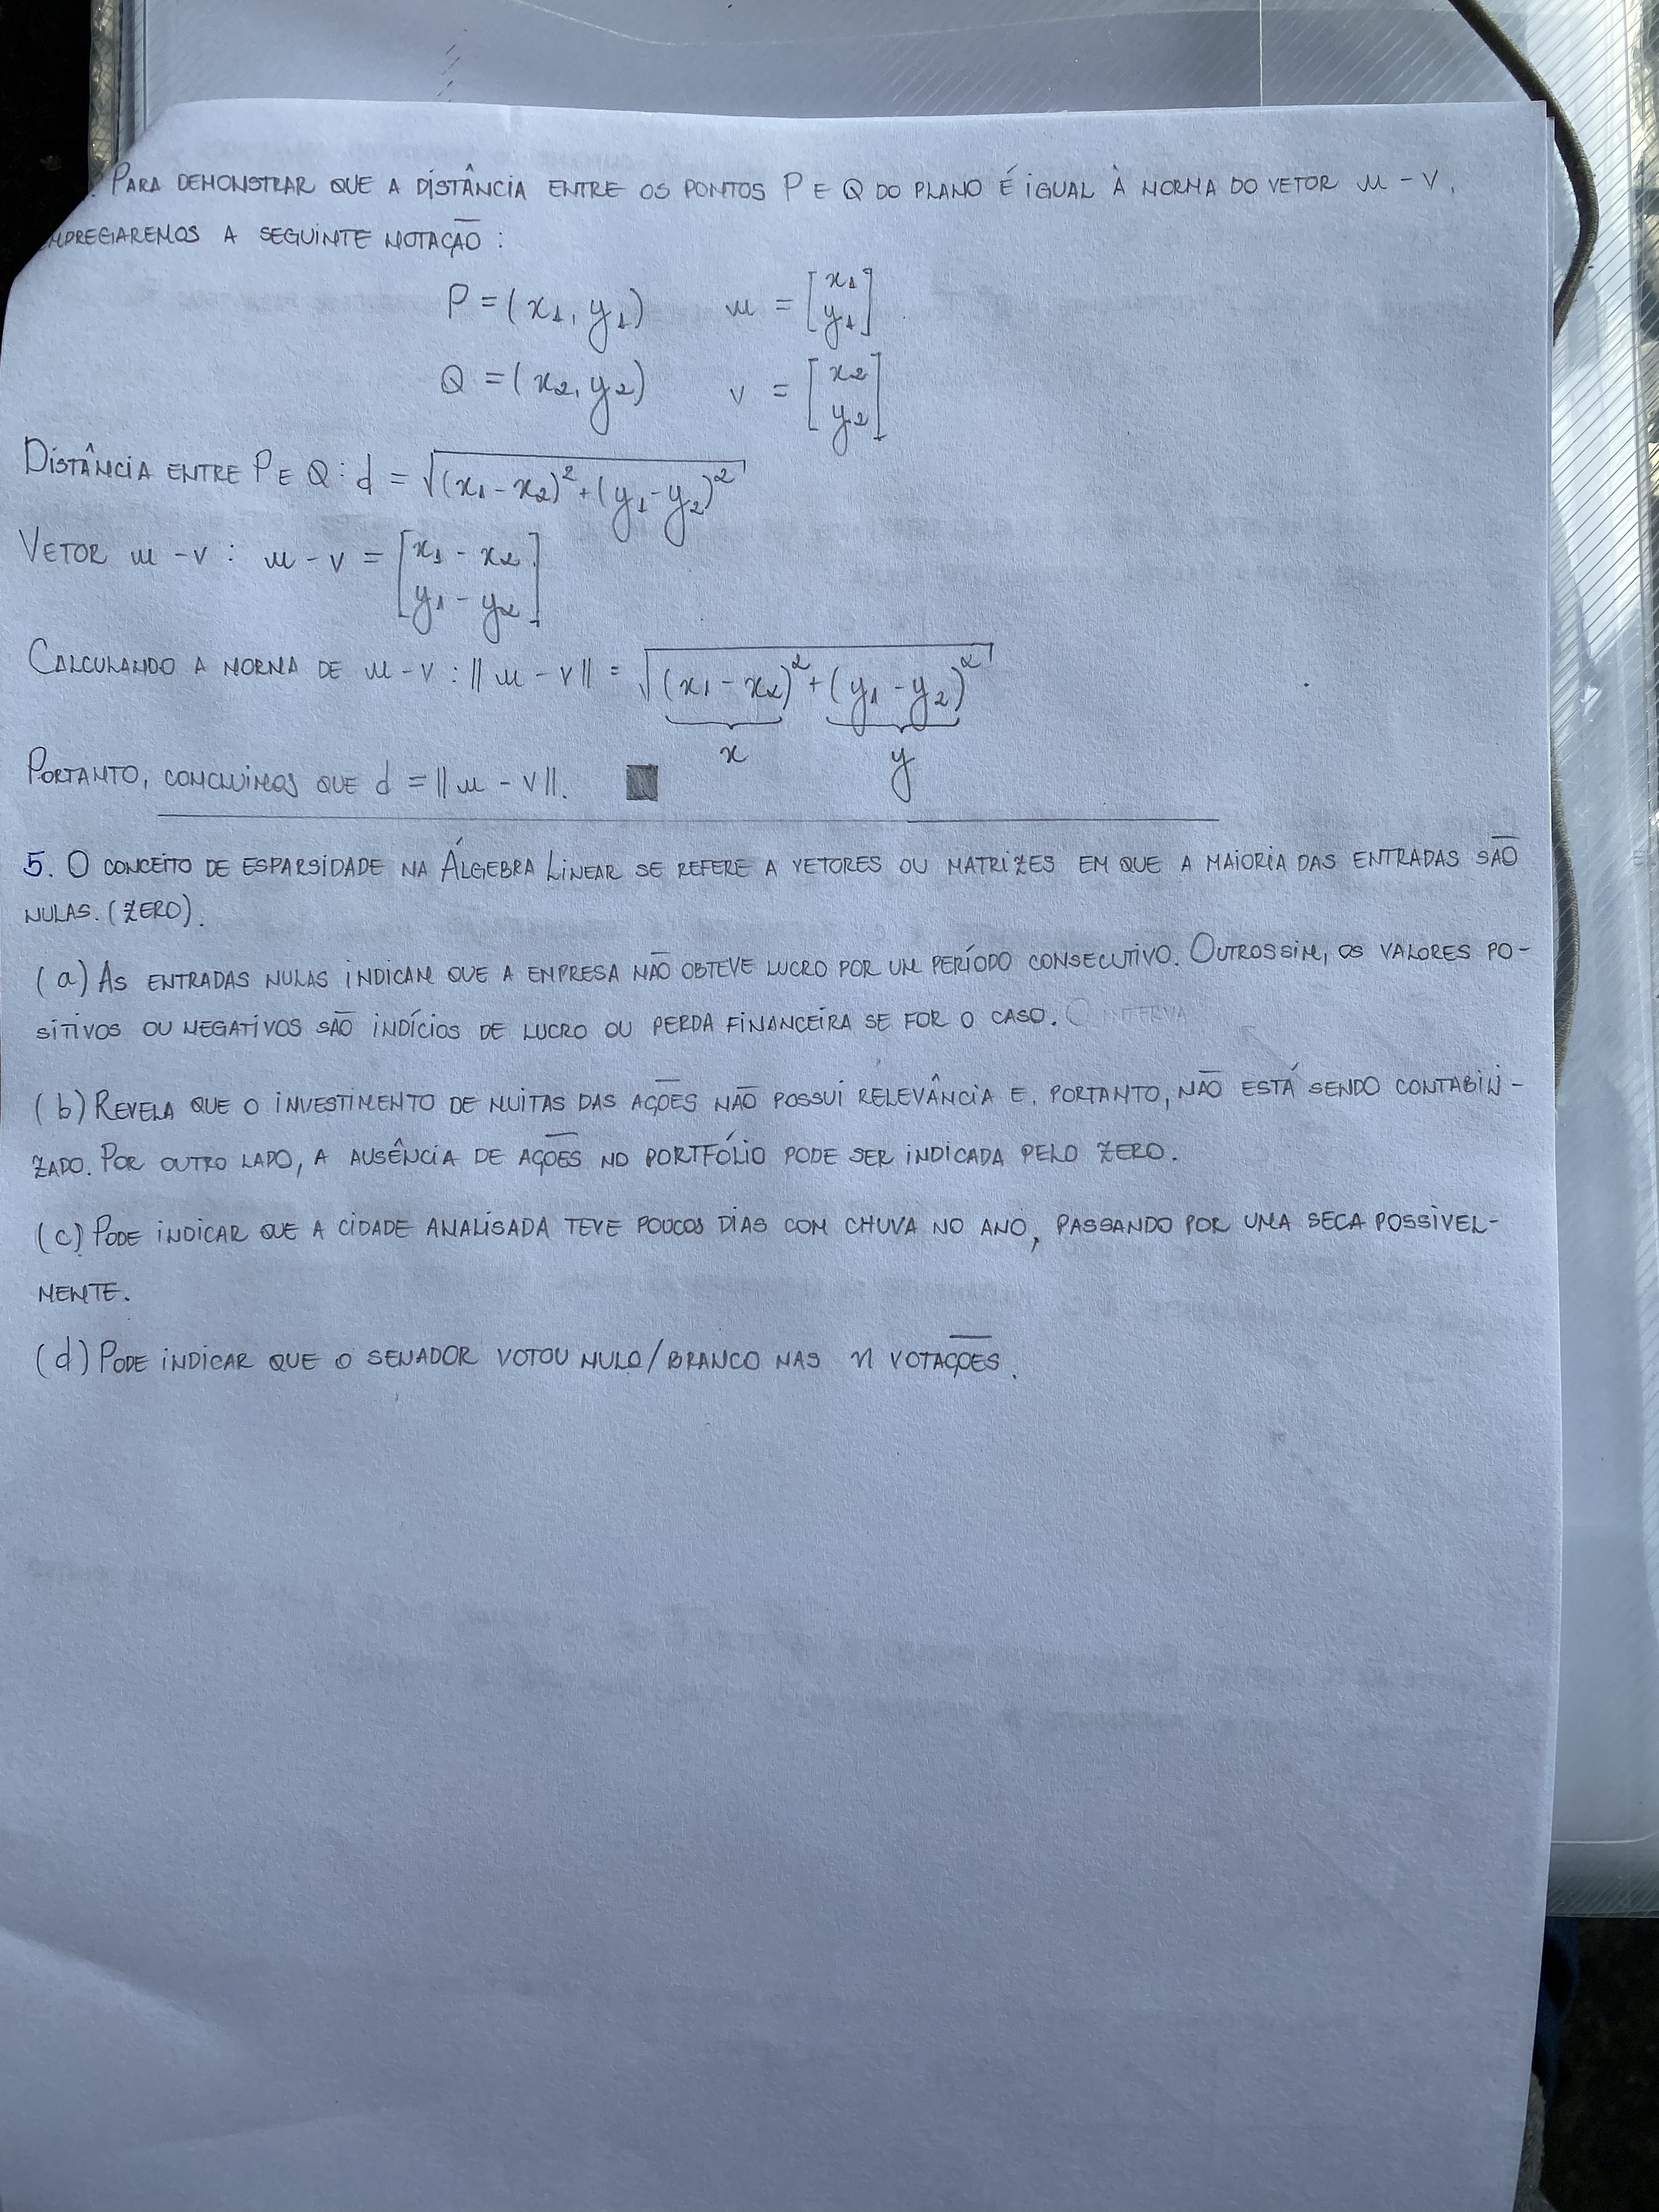 . Para demonstrar que a distância entre os pontos P e Q do plano é igual à norma do vetor u - v,
empregaremos a seguinte notação:
P = (x1, y1) u = [x1 y1]
Q = (x2, y2) v = [x2 y2]
Distância entre P e Q: d = √(x1 - x2)² + (y1 - y2)²
Vetor u - v: u - v = [x1 - x2 y1 - y2]
Calculando a norma de u - v: ||u - v|| = √(x1 - x2)² + (y1 - y2)²
x y
Portanto, concluimos que d = ||u - v||. ■
5. O conceito de esparsidade na Álgebra Linear se refere a vetores ou matrizes em que a maioria das entradas são
nulas. (zero).
(a) As entradas nulas indicam que a empresa não obteve lucro por um período consecutivo. Outrossim, os valores po-
sitivos ou negativos são indícios de lucro ou perda financeira se for o caso. O interva
(b) Revela que o investimento de muitas das ações não possui relevância e, portanto, não está sendo contabili-
zado. Por outro lado, a ausência de ações no portfólio pode ser indicada pelo zero.
(c) Pode indicar que a cidade analisada teve poucos dias com chuva no ano, passando por uma seca possivel-
mente.
(d) Pode indicar que o senador votou nulo/branco nas n votações.